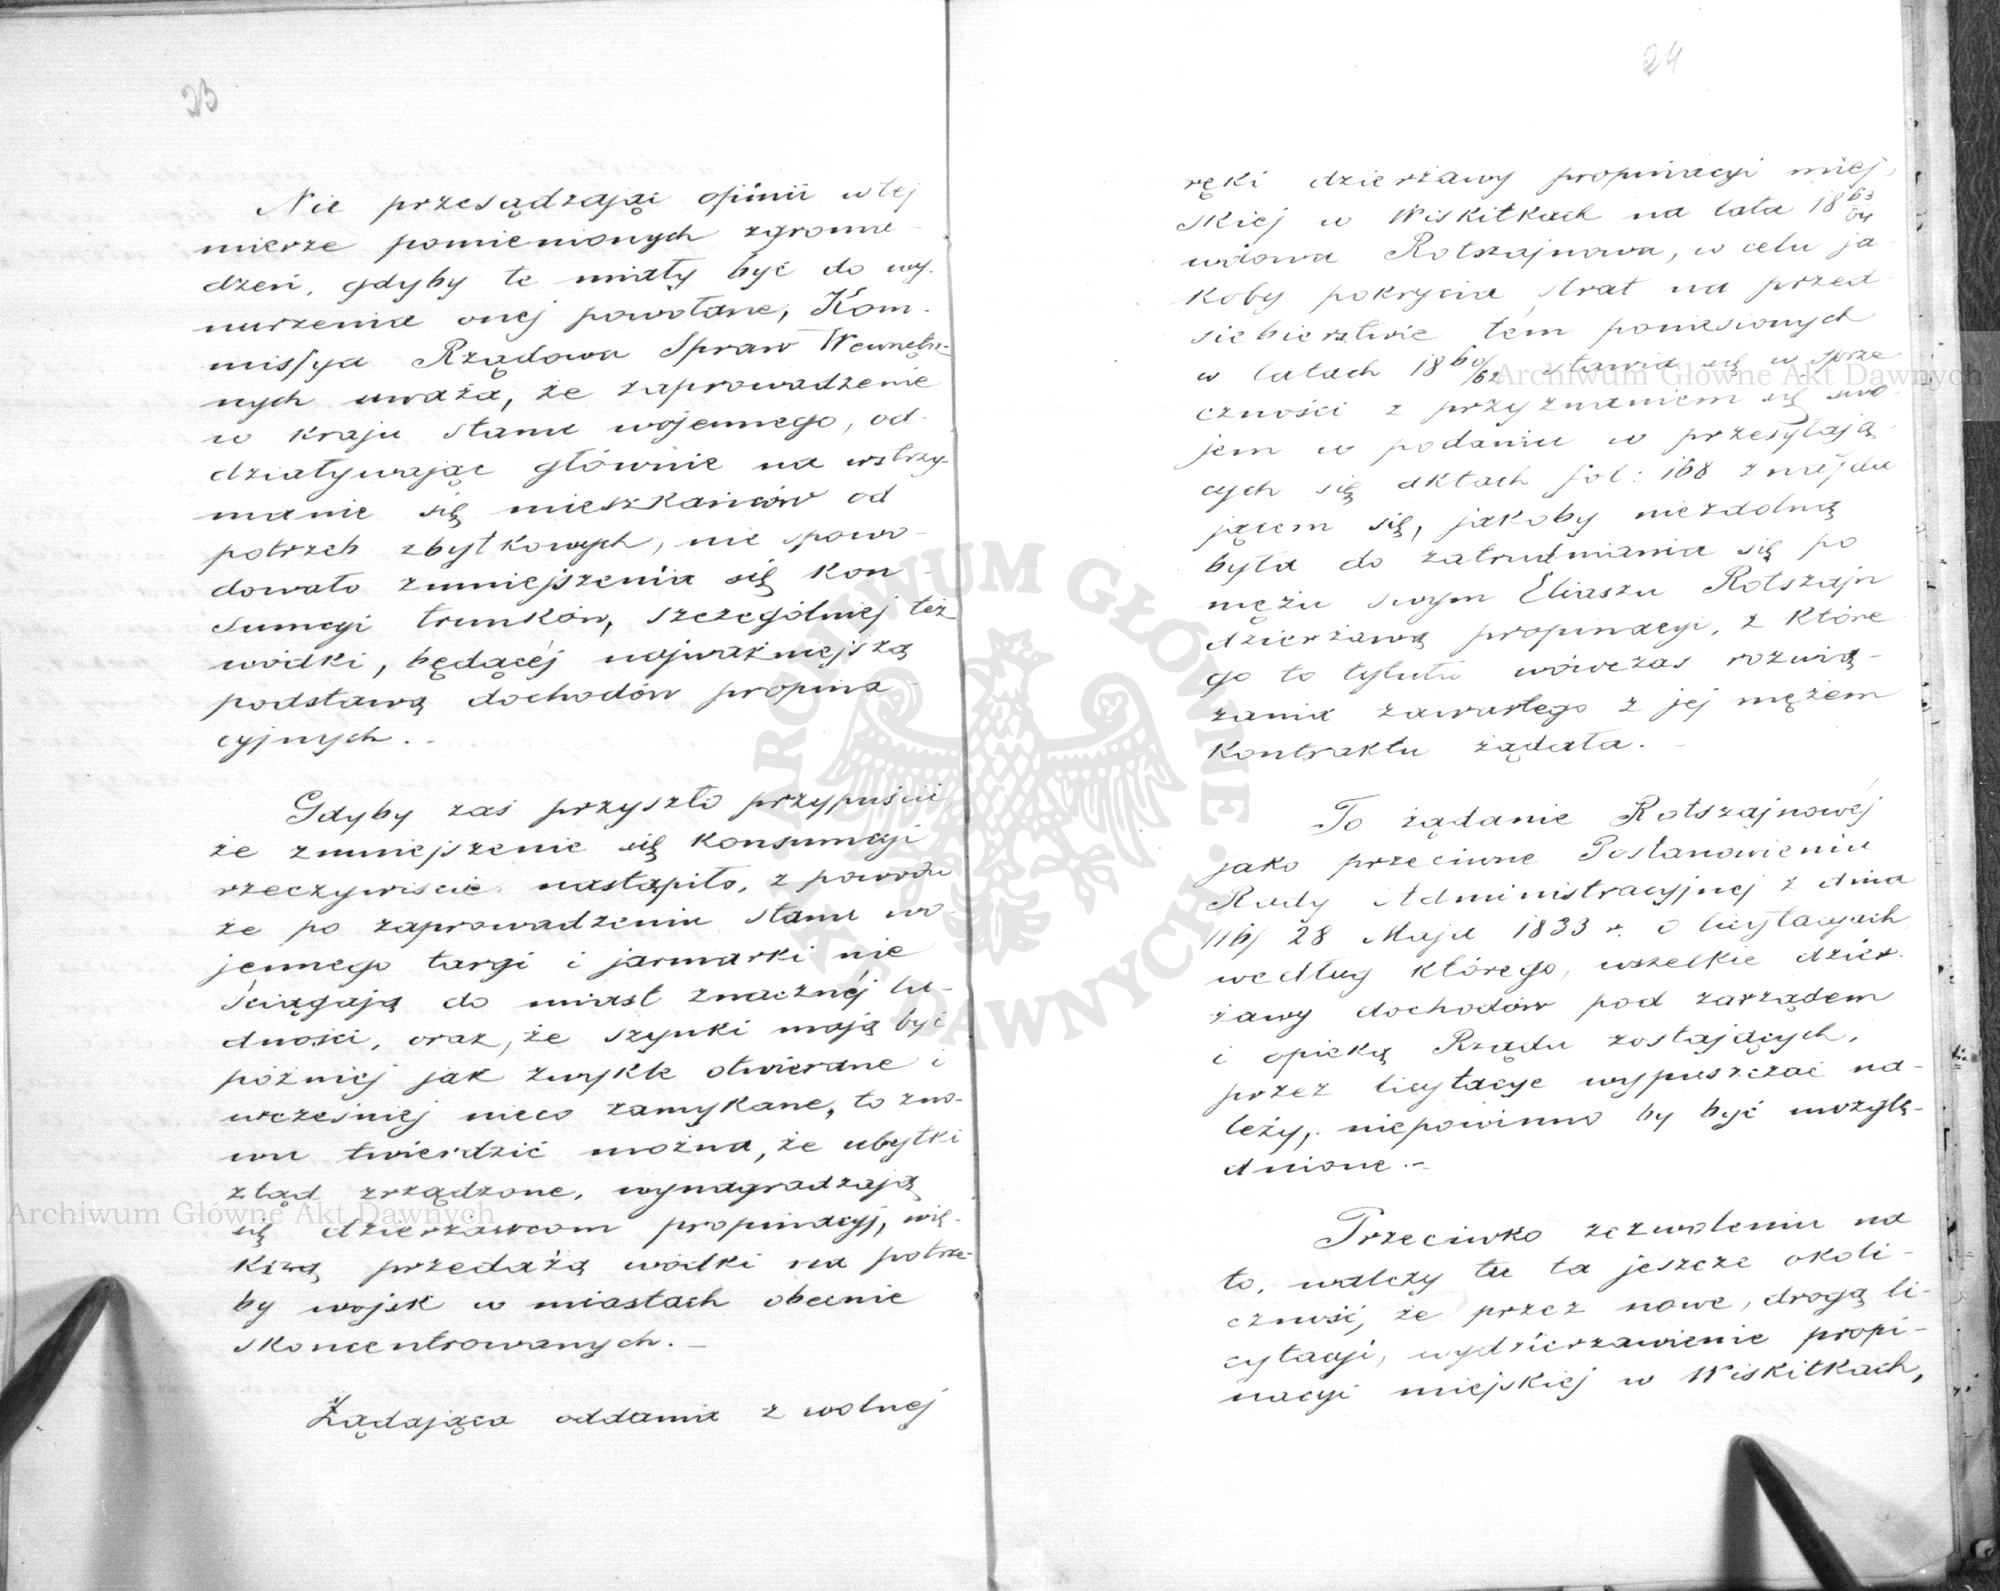 23
Nie przesądzając opinii w tej
mierze pomienionych zgroma-
dzeń, gdyby te miały być do wy-
nurzenia onej powołane, Kom-
missya Rządowa Spraw Wewnętrz-
nych uważa, że zaprowadzenie
w kraju stanu wojennego, od-
działywając głównie na wstrzy-
manie się mieszkańców od
potrzeb zbytkowych, nie spowo-
dowało zmniejszenia się kon-
sumcyi trunków, szczególniej też
wódki, będącéj najważniejszą
podstawą dochodów propina-
cyjnych. -
Gdyby zaś przyszło przypuścić
że zmniejszenie się konsumcyi
rzeczywiście nastąpiło, z powodu
że po zaprowadzeniu stanu wo-
jennego targi i jarmarki nie
ściągają do miast znacznéj lu-
dności, oraz, że szynki mają być
później jak zwykle otwierane i
wcześniej nieco zamykane, to zno-
wu twierdzić można, że ubytki
ztąd zrządzone, wynagradzają
się dzierżawcom propinacyj, wię-
kszą przedażą wódki na potrze-
by wojsk w miastach obecnie
skoncentrowanych. -
Żądająca oddania z wolnej
24
ręki dzierżawy propinacyi miej-
skiej w Wiskitkach na lata 1863/64
wdowa Rotszajnowa, w celu ja-
koby pokrycia strat na przed-
siebierstwie tém poniesionych
w latach 1860/62 stawia się w sprze-
czności z przyznaniem się swo-
jem w podaniu w przesyłają-
cych się aktach fol: 168 znajdu-
jącem się, jakoby niezdolną
była do zatrudniania się po
mężu swym Eliaszu Rotszajn
dzierżawą propinacyi, z które-
go to tytułu wówczas rozwią-
zania zawartego z jej mężem
Kontraktu żądała. -
To żądanie Rotszajnowéj
jako przeciwne Postanowieniu
Rady Administracyjnej z dnia
/16/ 28 Maja 1833 r. o licytacyach
według którego, wszelkie dzier-
żawy dochodów pod zarządem
i opieką Rządu zostających,
przez licytacye wypuszczać na-
leży, niepowinno by być uwzglę-
dnione. -
Przeciwko zezwoleniu na
to, walczy tu ta jeszcze okoli-
czność, że przez nowe, drogą li-
cytacyi, wydzierżawienie propi-
nacyi miejskiej w Wiskitkach,
Archiwum Główne Akt Dawnych
Archiwum Główne Akt Dawnych
ARCHIWUM GŁÓWNE AKT DAWNYCH